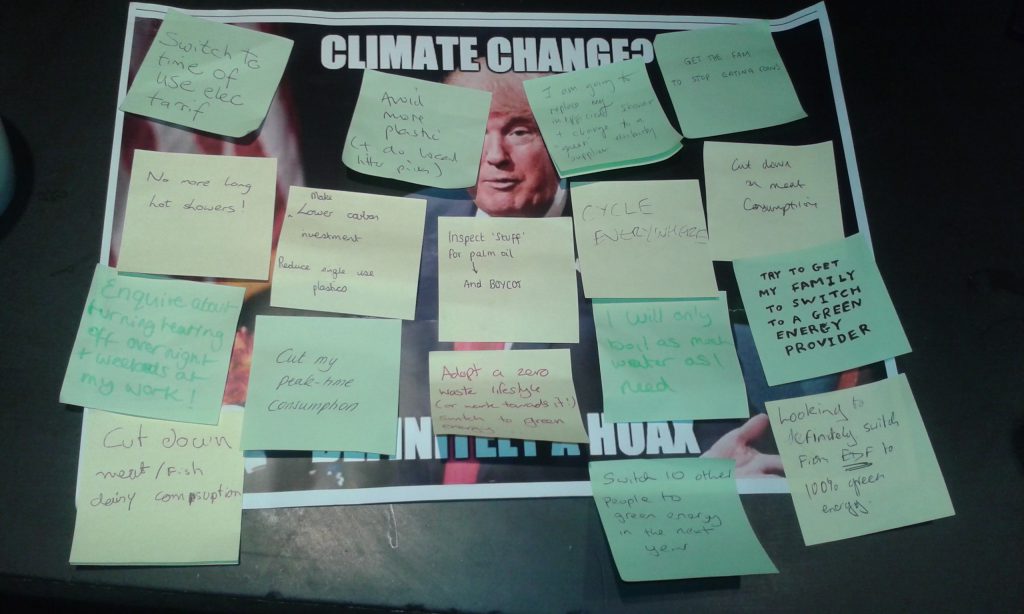 CLIMATE CHANGE?
Switch to
time of
use elec
tarrif
Avoid
more
plastic
(+ do local
litter picks)
I am going to
replace my
inefficient shower
+ change to a
green electricity
supplier
GET THE FAM
TO STOP EATING COWS
No more long
hot showers!
Make
Lower carbon
investment
Reduce single use
plastics
Inspect 'stuff'
for palm oil
↓
AND BOYCOT
CYCLE
EVERYWHERE
Cut down
on meat
Consumption
TRY TO GET
MY FAMILY
TO SWITCH
TO A GREEN
ENERGY
PROVIDER
Enquire about
turning heating
off overnight
+ weekends at
my work!
Cut my
peak-time
consumption
Adopt a zero
waste lifestyle
(or work towards it!)
switch to green
energy
I will only
boil as much
water as I
need
Looking to
definitely switch
from EDF to
100% green
energy.
Cut down
meat/Fish
dairy
Switch 10 other
people to
green energy
in the next
year
A HOAX